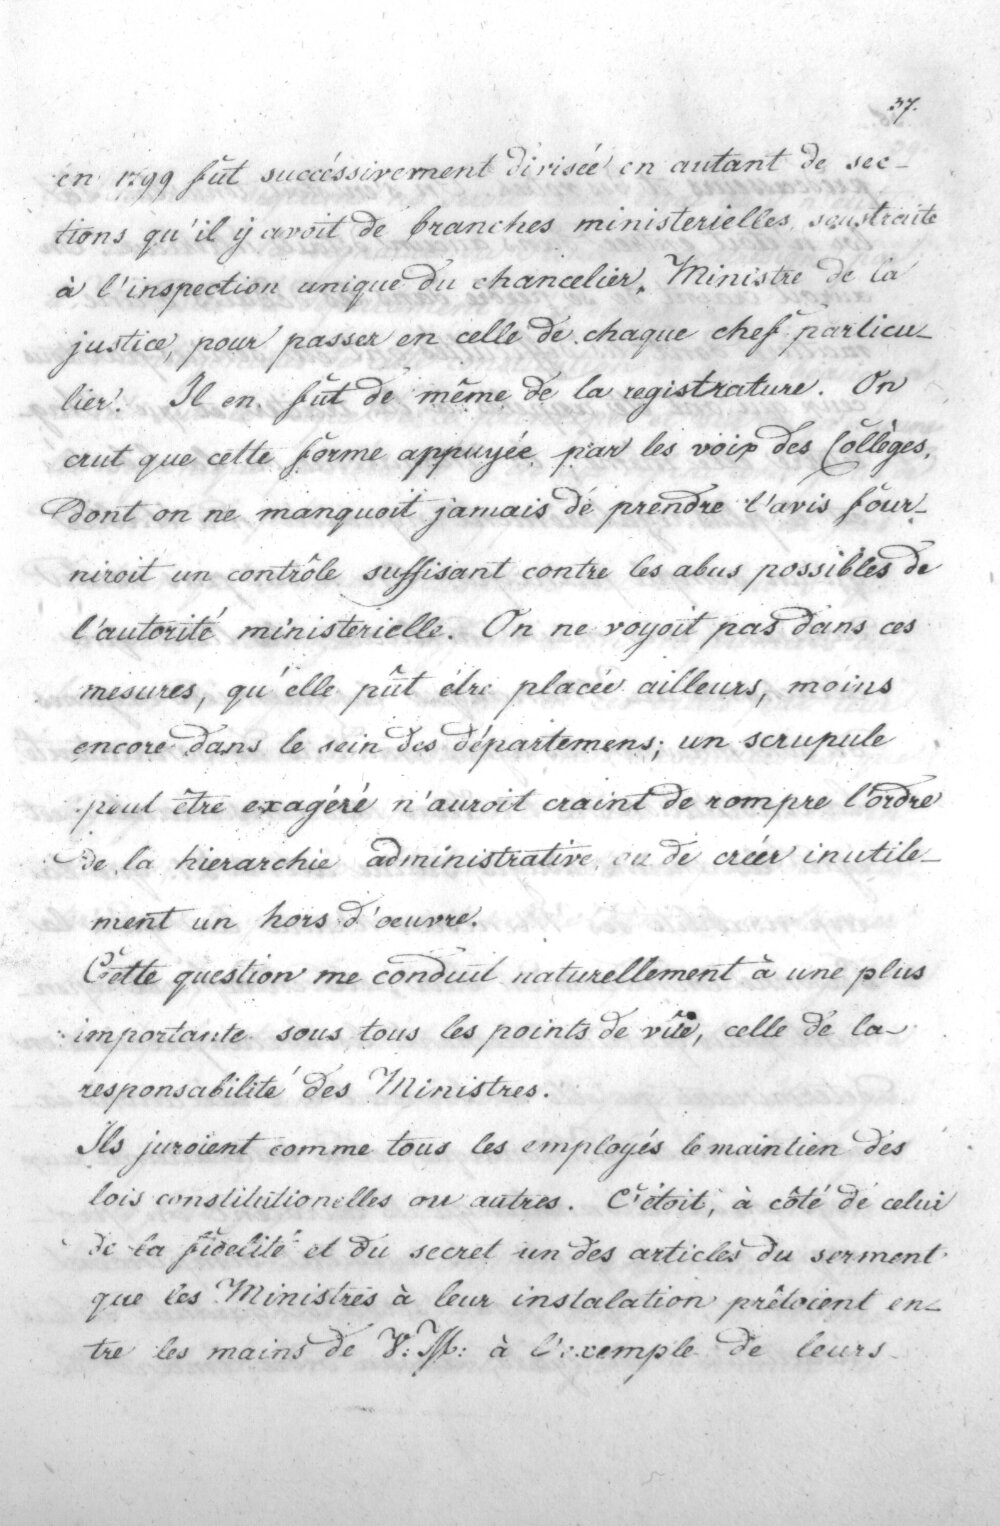 37.
en 1799 fût succéssivement divisée en autant de sec-
tions qu'il ÿ avoit de branches ministerielles soustraite
à l'inspection unique du chancelier, Ministre de la
justice, pour passer en celle de chaque chef particu-
lier. Il en fût de même de la registrature. On
crut que cette forme appuyée par les voix des Collèges,
dont on ne manquoit jamais de prendre l'avis four-
niroit un contrôle suffisant contre les abus possibles de
l'autorité ministerielle. On ne voyoit pas dans ces
mesures, qu'elle pût être placée ailleurs, moins
encore dans le sein des départemens; un scrupule
peut être exagéré n'auroit craint de rompre l'ordre
de la hierarchie administrative ou de créer inutile-
ment un hors d'oeuvre.
Cette question me conduit naturellement à une plus
importante sous tous les points de vûe, celle de la
responsabilité des Ministres.
Ils juroient comme tous les employés le maintien des
lois constitutionelles ou autres. C'étoit, à côté de celui
de la fidelité et du secret un des articles du serment
que les Ministres à leur instalation prêtoient en-
tre les mains de V: M: à l'exemple de leurs